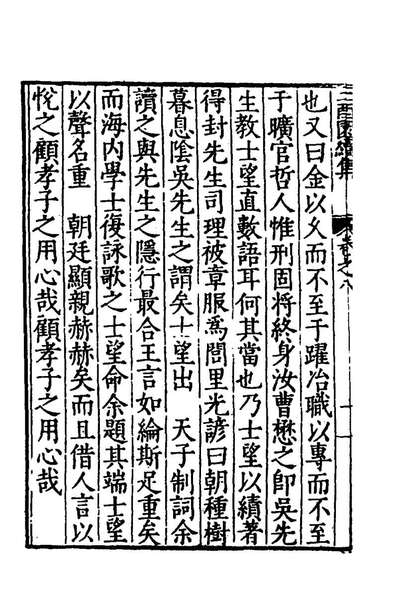 三酉園續集
卷之八
十一
也又曰金以火而不至于躍冶職以專而不至
于曠官哲人惟刑固將終身汝曹懋之卽吳先
生教士望直數語耳何其當也乃士望以績著
得封先生司理被章服爲閭里光諺曰朝種樹
暮息陰吳先生之謂矣士望出　天子制詞余
讀之與先生之隱行最合王言如綸斯足重矣
而海内學士復詠歌之士望命余題其端士望
以聲名重　朝廷顯親赫赫矣而且借人言以
悅之顧孝子之用心哉顧孝子之用心哉